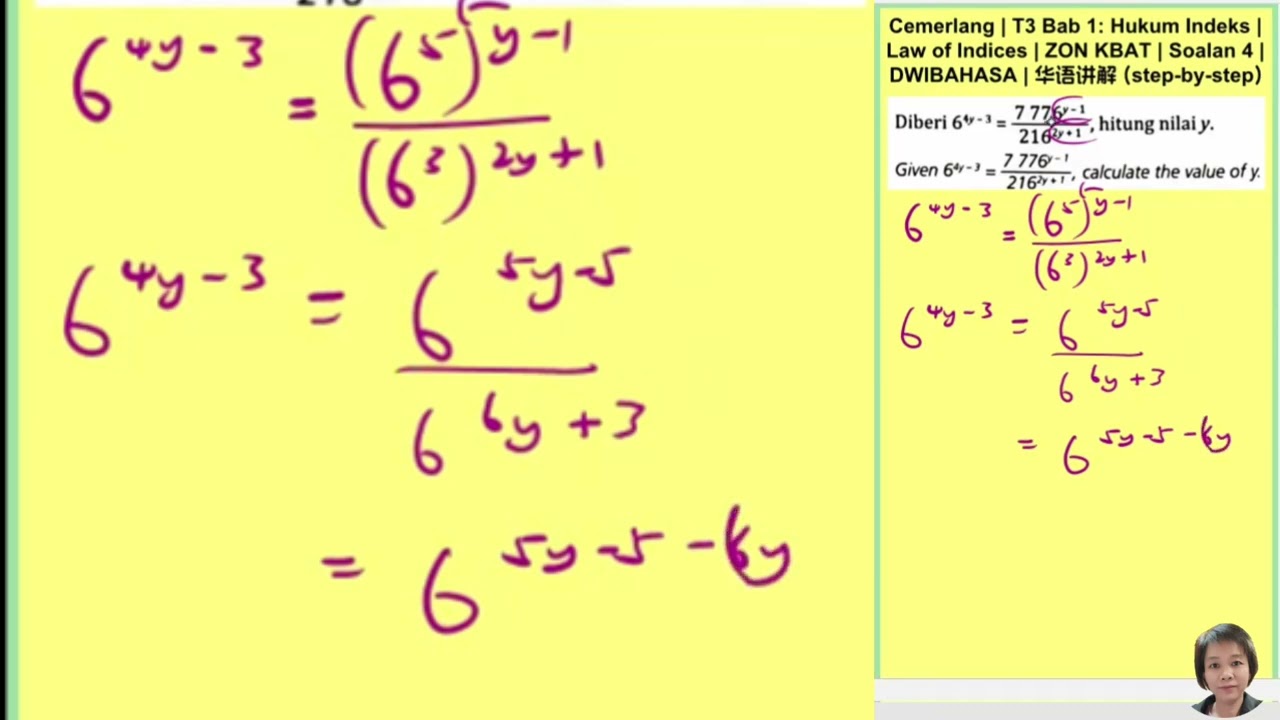 6^{4y-3} = \frac{(6^5)^{y-1}}{(6^3)^{2y+1}}
6^{4y-3} = \frac{6^{5y-5}}{6^{6y+3}}
= 6^{5y-5-6y}
Cemerlang | T3 Bab 1: Hukum Indeks |
Law of Indices | ZON KBAT | Soalan 4 |
DWIBAHASA | 华语讲解 (step-by-step)
Diberi 6^{4y-3} = \frac{7 776^{y-1}}{216^{2y+1}}, hitung nilai y.
Given 6^{4y-3} = \frac{7 776^{y-1}}{216^{2y+1}}, calculate the value of y.
6^{4y-3} = \frac{(6^5)^{y-1}}{(6^3)^{2y+1}}
6^{4y-3} = \frac{6^{5y-5}}{6^{6y+3}}
= 6^{5y-5-6y}